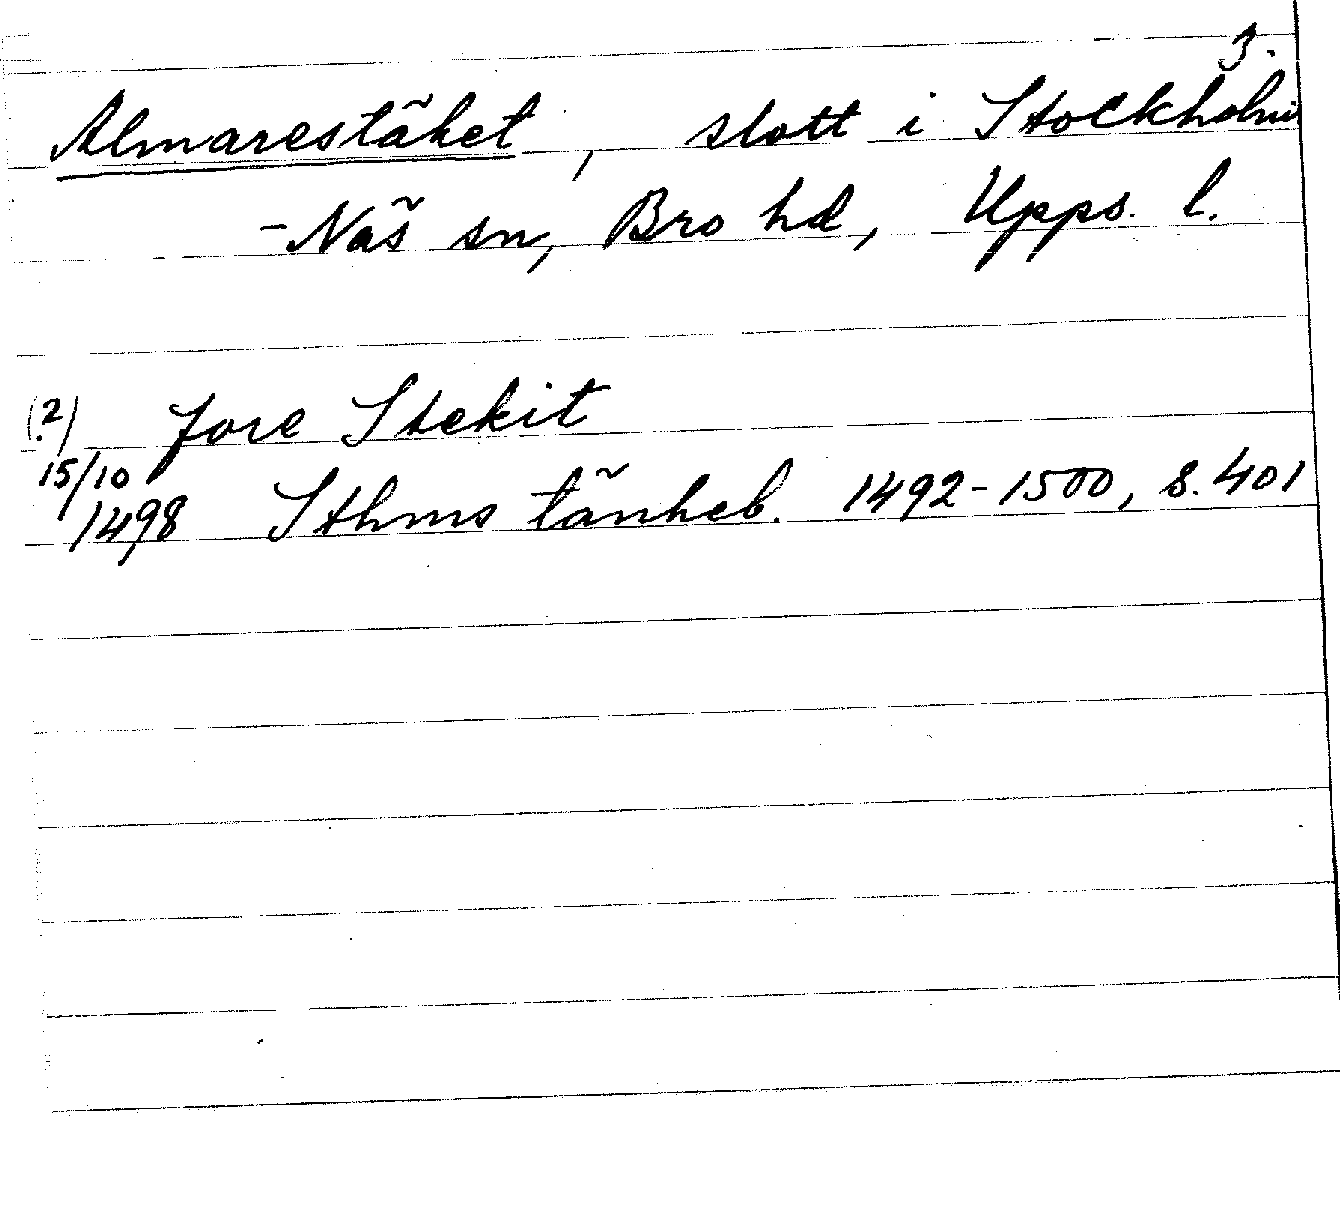 3.
Almarestäket, slott i Stockholm
-Näs sn, Bro hd, Upps. l.
(?) fore Stekit
15/10
1498 Sthms tänkeb. 1492-1500, s. 401